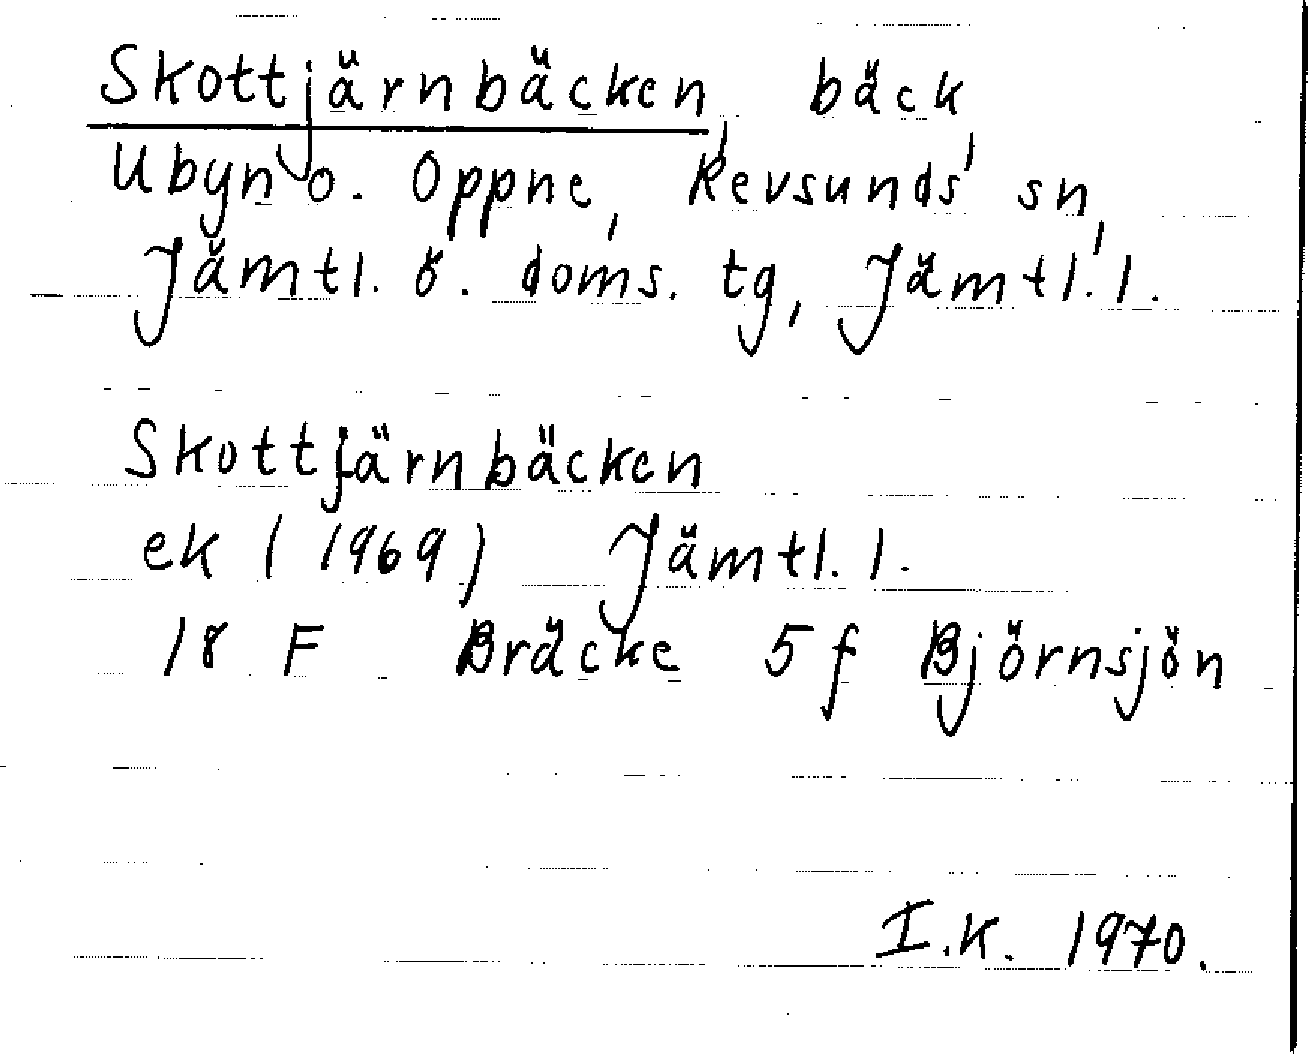 Skottjärnbäcken, bäck,
Ubyn o. Oppne, Revsunds sn,
Jämtl. ö. doms. tg, Jämtl. l.
Skottjärnbäcken
ek (1969) Jämtl. l.
18 F Bräcke 5 f Björnsjön
I.K. 1970.